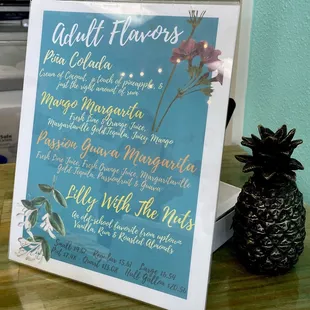 Adult Flavors
Piña Colada
Cream of Coconut, a touch of pineapple, &
just the right amount of rum
Mango Margarita
Fresh Lime & Orange Juice,
Margaritaville Gold Tequila, Juicy Mango
Passion Guava Margarita
Fresh Lime Juice, Fresh Orange Juice, Margaritaville
Gold Tequila, Passionfruit & Guava
Lilly With The Nuts
An old-school favorite from uptown
Vanilla, Rum & Roasted Almonds
Small Regular Large
Pt. Quart Half Gallon